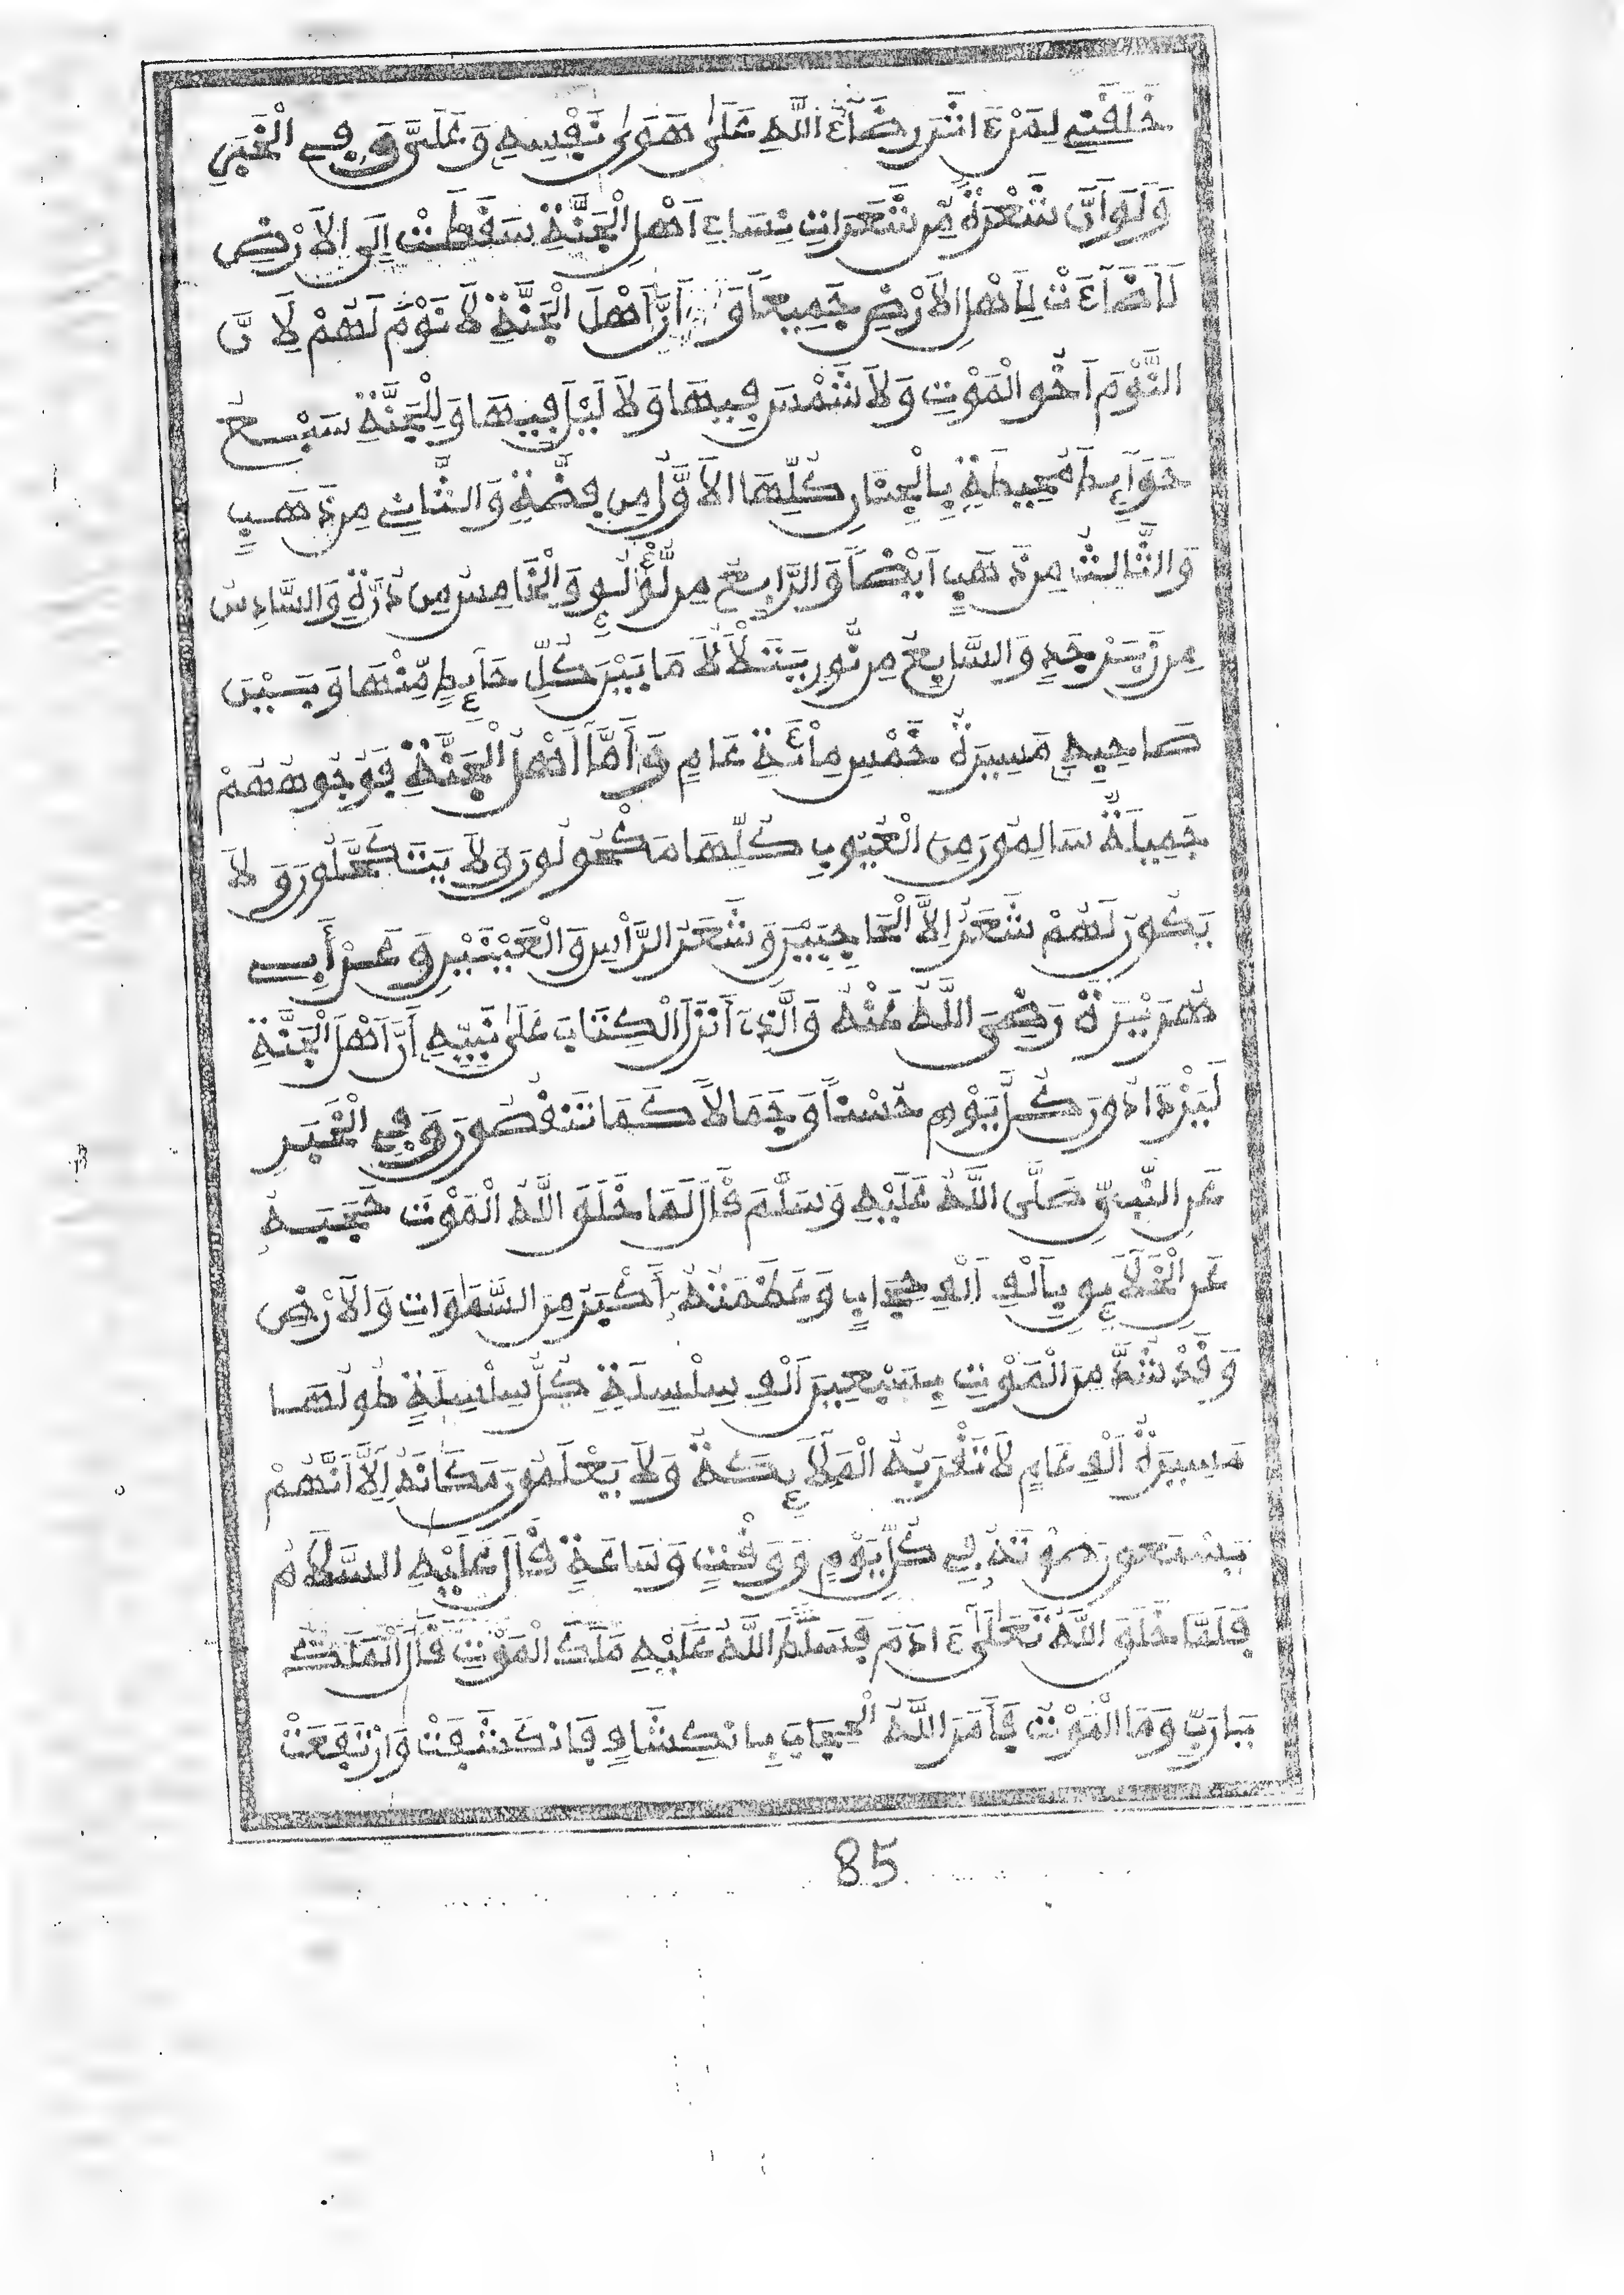 خَلَقَنِي لِمَنْ ءَاثَرَ رِضَآءَ اللَّهِ عَلَىٰ هَوَىٰ نَفْسِهِ وَعَلَيَّ وَفِي الْخَبَرِ
وَلَوْ أَنَّ شَعْرَةً مِّن شَعَرَاتِ نِسَاءِ أَهْلِ الْجَنَّةِ سَقَطَتْ إِلَى الْأَرْضِ
لَأَضَآءَتْ لِأَهْلِ الْأَرْضِ جَمِيعاً وَ أَنَّ أَهْلَ الْجَنَّةِ لَا نَوْمَ لَهُمْ لِأَنَّ
النَّوْمَ أَخُو الْمَوْتِ وَلَا شَمْسَ فِيهَا وَلَا لَيْلَ فِيهَا وَلِلْجَنَّةِ سَبْعُ
حَوَآئِطَ مُحِيطَةٍ بِالْجِنَانِ كُلِّهَا الْأَوَّلُ مِن فِضَّةٍ وَالثَّانِي مِن ذَهَبٍ
وَالثَّالِثُ مِن ذَهَبٍ أَيْضاً وَالرَّابِعُ مِن لُّؤْلُؤٍ وَالْخَامِسُ مِن دُرَّةٍ وَالسَّادِسُ
مِن زَبَرْجَدٍ وَالسَّابِعُ مِن نُّورٍ يَتَلَأْلَأُ مَا بَيْنَ كُلِّ حَآئِطٍ مِّنْهَا وَبَيْنَ
صَاحِبِهِ مَسِيرَةُ خَمْسِ مِائَةِ عَامٍ وَأَمَّا أَهْلُ الْجَنَّةِ فَوُجُوهُهُمْ
جَمِيلَةٌ سَالِمُونَ مِنَ الْعُيُوبِ كُلِّهَا مَكْحُولُونَ وَلَا يَتَكَحَّلُونَ وَلَا
يَكُونُ لَهُمْ شَعَرٌ إِلَّا الْحَاجِبَيْنِ وَشَعَرُ الرَّأْسِ وَالْعَيْنَيْنِ وَعَنْ أَبِي
هُرَيْرَةَ رَضِيَ اللَّهُ عَنْهُ وَالَّذِي أَنزَلَ الْكِتَابَ عَلَىٰ نَبِيِّهِ أَنَّ أَهْلَ الْجَنَّةِ
لَيَزْدَادُونَ كُلَّ يَوْمٍ حُسْناً وَجَمَالاً كَمَا تَنقُصُونَ وَفِي الْخَبَرِ
عَنِ النَّبِيِّ صَلَّى اللَّهُ عَلَيْهِ وَسَلَّمَ قَالَ لَمَا خَلَقَ اللَّهُ الْمَوْتَ حَجَبَهُ
عَنِ الْخَلَآئِقِ بِأَلْفِ أَلْفِ حِجَابٍ وَعَظَمَتُهُ أَكْبَرُ مِنَ السَّمَاوَاتِ وَالْأَرْضِ
وَقَدْ شُدَّ مِنَ الْمَوْتِ بِسَبْعِينَ أَلْفِ سِلْسِلَةٍ كُلُّ سِلْسِلَةٍ طُولُهَا
مَسِيرَةُ أَلْفِ عَامٍ لَا تَقْرَبُهُ الْمَلَآئِكَةُ وَلَا يَعْلَمُونَ مَكَانَهُ إِلَّا أَنَّهُمْ
يَسْمَعُونَ صَوْتَهُ فِي كُلِّ يَوْمٍ وَوَقْتٍ وَسَاعَةٍ قَالَ عَلَيْهِ السَّلَامُ
فَلَمَّا خَلَقَ اللَّهُ تَعَالَىٰ ءَادَمَ فَسَلَّطَ اللَّهُ عَلَيْهِ مَلَكَ الْمَوْتِ قَالَ الْمَلَكُ
يَارَبِّ وَمَا الْمَوْتُ فَأَمَرَ اللَّهُ الْحِجَابَ بِانكِشَافٍ فَانكَشَفَتْ وَارْتَفَعَتْ
85